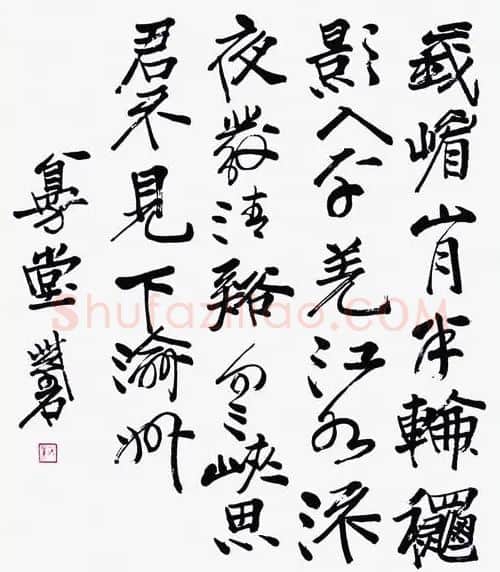 峩嵋山月半輪龝
影入平羌江水流
夜發清谿向三峽思
君不見下渝州
堂
Shufaziliao.COM